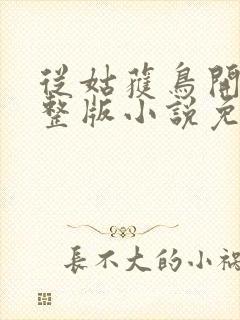 從姑獲鳥開
整版小說免
長不大的小禍